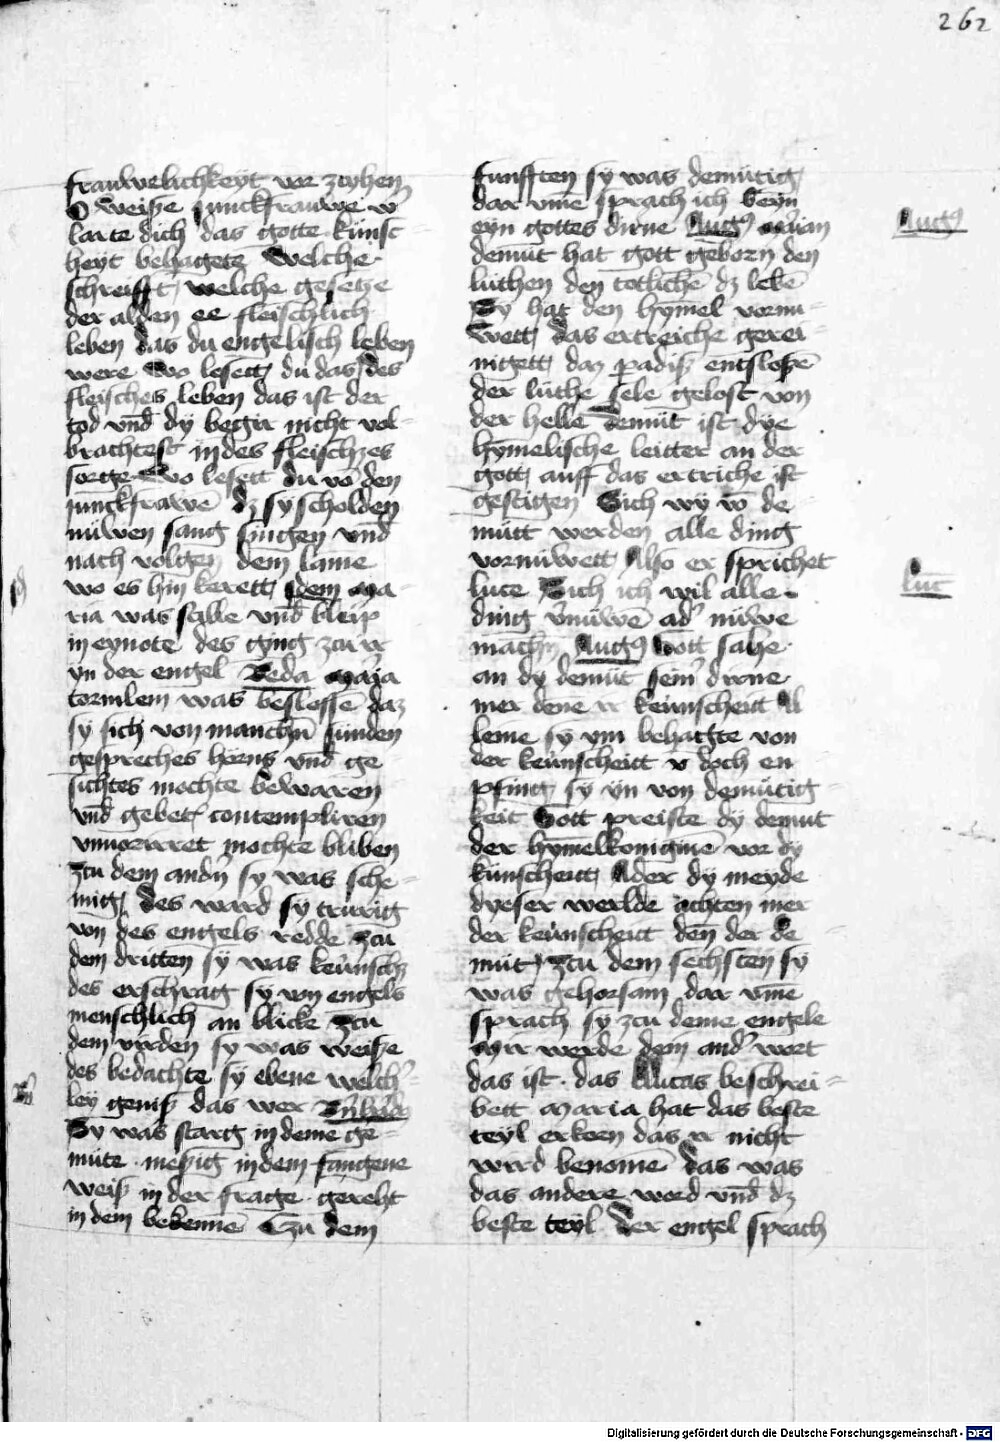 262
frauwelichkeyt vor zcyhen
O weisze junckfrauwe w
larte dich das gotte künsc
heyt behagete Welche
schreifft welche gesetze
der alden ee fleischlich
leben das du engelisch leben
were Wo lesett du das des
fleisches leben das ist der
tod vnd dy begir nicht vol
brachtest in des fleischzes
sorge Wo lesett du vō den
junckfrawē dz sy scholden
nüwen sang singen vnd
nach volgen dem lame
wo es hin kerett dem Ma
ria was stille vnd bleip
in eynote des ging zcu ir
yn der engel Beda Maria
to jrusalem was beslossē daz
sy sich von manchñ sünden
gespreches hörns vnd ge
sichtes mochte bewaren
vnd gebet contempliren
vnuorirret mochte bliben
Zcu dem andñ sy was sche
mig des ward sy trurig
von des engels redde Zcu
dem dritten sy was keünsch
des erschrag sy von engels
menschlich an blicke Zcu
dem virden sy was weisze
des bedachte sy ebene welch
ley genisz das wer
Sy was starg in deme ge
müte mesig in dem fangene
weisz in der frage gereht
in dem bekennē Tzu dem
funfften sy was demütig
dar vme sprach ich beyn
eyn gottes dirne Aug9 Mariam
demüt hat gott geborn den
lüthen den tötlichē dz lebē
Sy hat den hymel vornu
wett das ertreiche gerei
nigett daz padisz entsloszē
der lüthe sele gelost von
der helle Demüt ist dye
hymelische leitter an der
gott auff das ertriche ist
gestigen Sich wy vō de
mütt werden alle ding
vornüwett Also er sprichet
luce Sich ich wil alle
ding vnüwē ad nüwe
machñ Aug9 Gott sahe
an dy demüt seiñ dirne
mer dene ir keünscheitt Al
leine sy ym behagte von
der keünscheitt v doch en
pfing sy yn von demütig
keit Gott preiste dy demut
der hymelkonigine vor dy
künscheitt Ader dy meyde
dyeser werlde achten mer
der keünscheitt den der de
müt Zcu dem sechsten sy
was gehorsam dar vme
sprach sy zcu deme engele
Mir werde dem and wort
das ist das Lucas beschrei
bett Maria hat das beste
teyl erkoren das ir nicht
wird benomē das was
das andere word vnd dz
beste teyl Der engel sprach
Aug9
luc